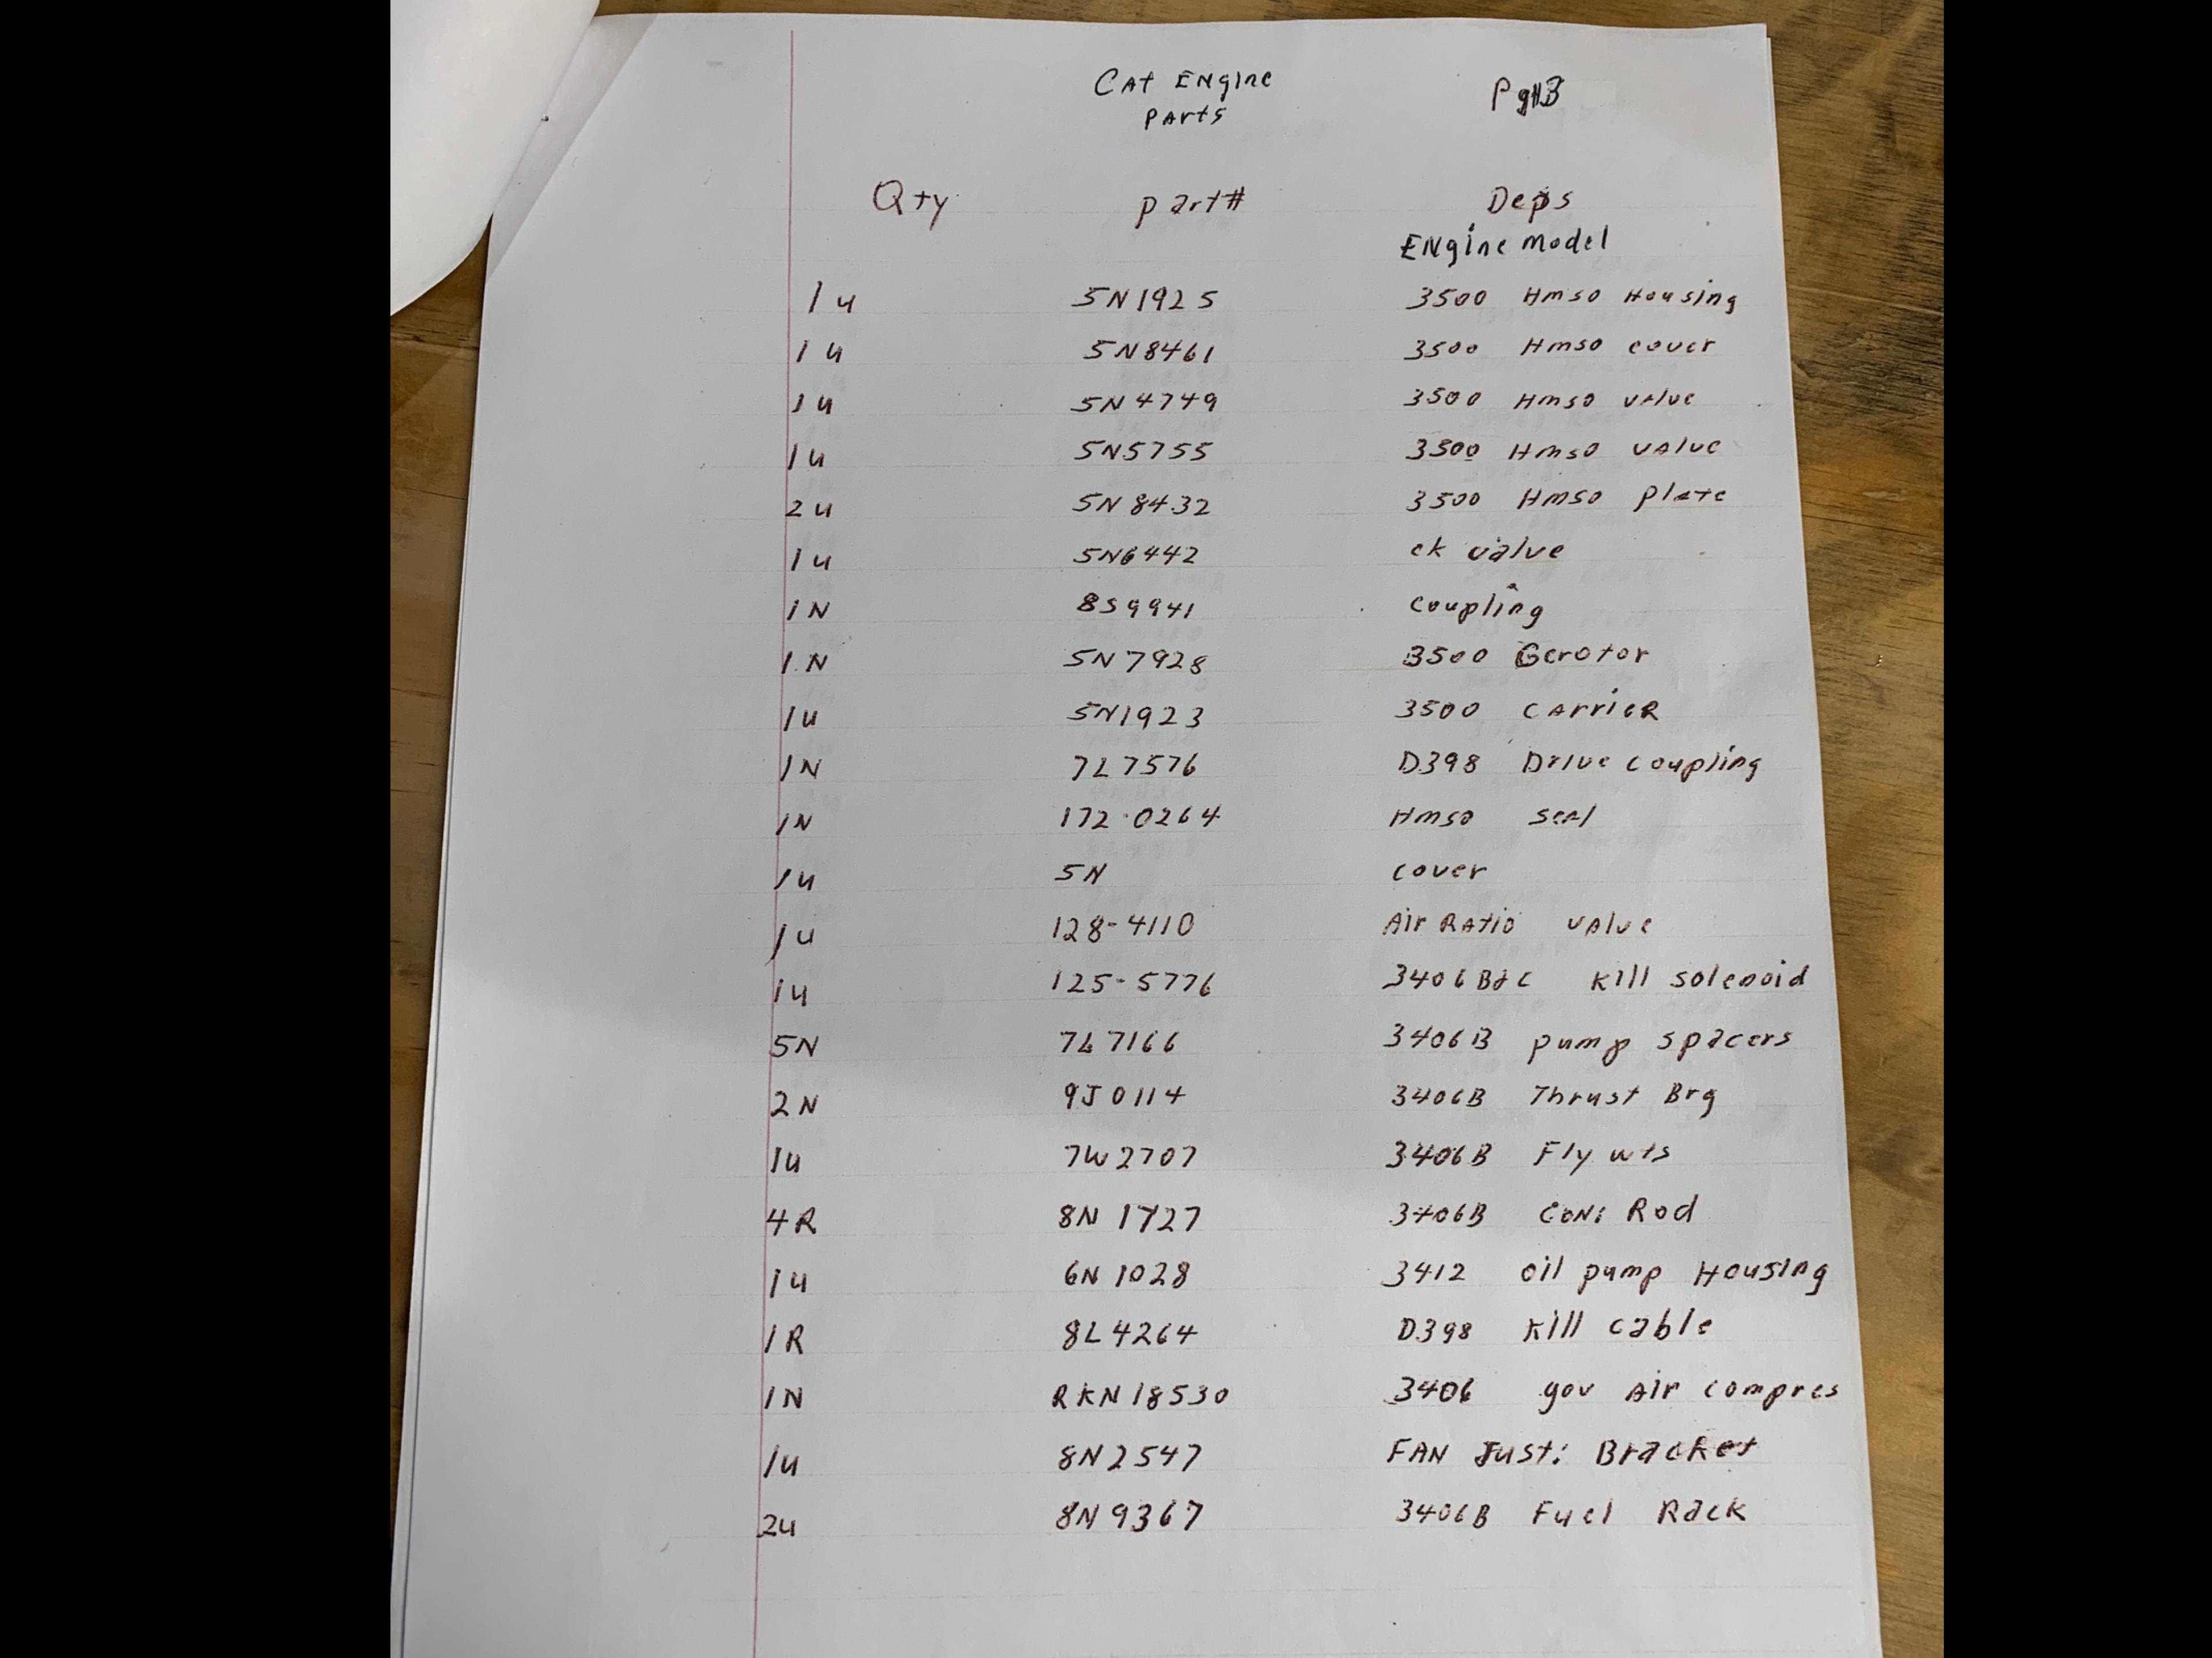 CAt ENgine PgHB
PArts
Qty part# Deps
ENgine model
1u 5N1925 3500 Hmso Housing
1u 5N8461 3500 Hmso cover
1u 5N4749 3500 Hmso vAlve
1u 5N5755 3500 Hmso vAlve
2u 5N8432 3500 Hmso plate
1u 5N6442 ck valve
1N 8S9941 coupling
1N 5N7928 3500 Gerotor
1u 5N1923 3500 CArrieR
1N 7L7576 D398 Drive coupling
1N 172-0264 Hmso seal
1u 5N cover
1u 128-4110 Air RAtio vAlve
1u 125-5776 3406 B&C Kill solenoid
5N 7L7166 3406B pump spacers
2N 9J0114 3406B Thrust Brg
1u 7W2707 3406B Fly wts
4R 8N1727 3406B CON: Rod
1u 6N1028 3412 oil pump Housing
1R 8L4264 D398 Kill cable
1N RKN18530 3406 gov Air compres
1u 8N2547 FAN Just: Bracket
2u 8N9367 3406B Fuel Rack